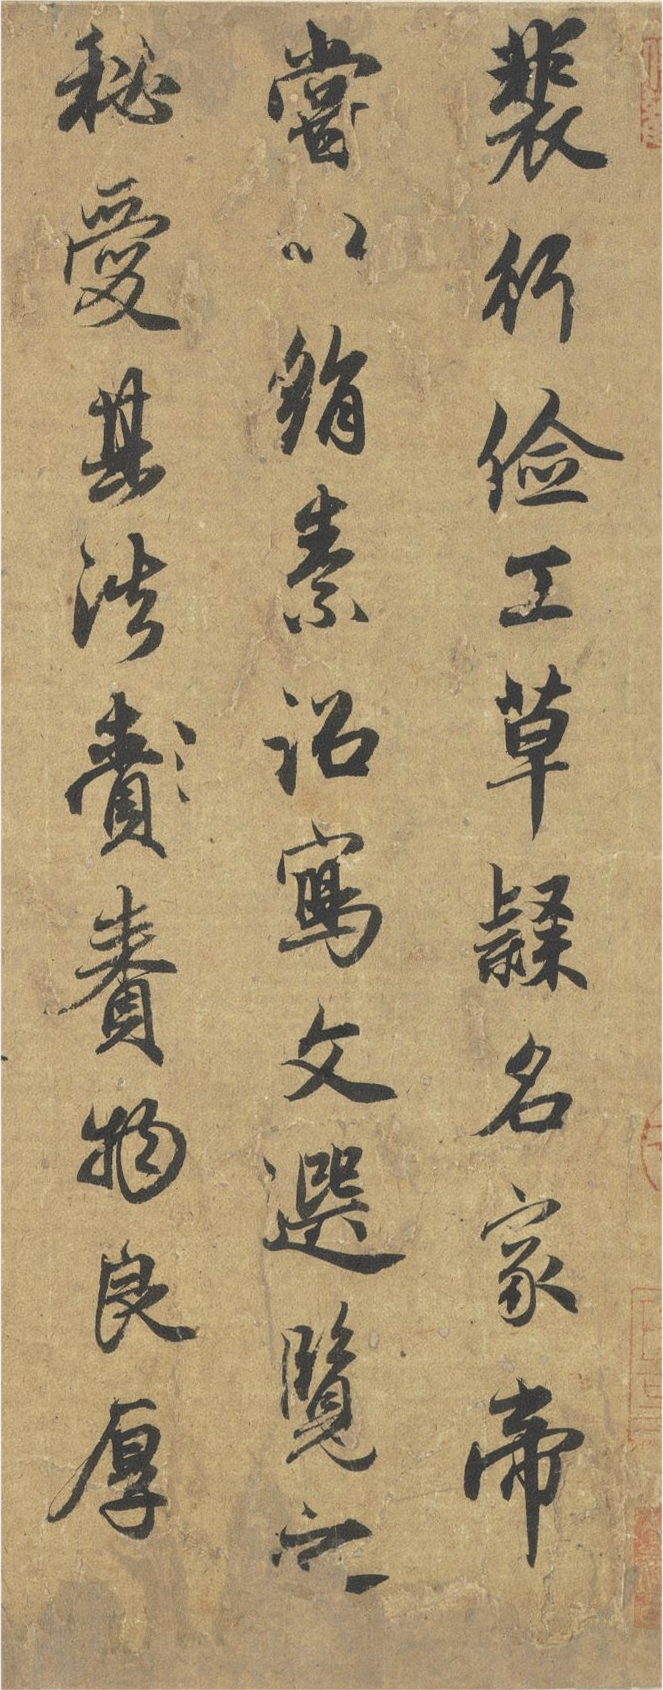 裴行儉工草隸名家帝
嘗以絹素詔寫文選覽之
秘愛其法賚賚物良厚